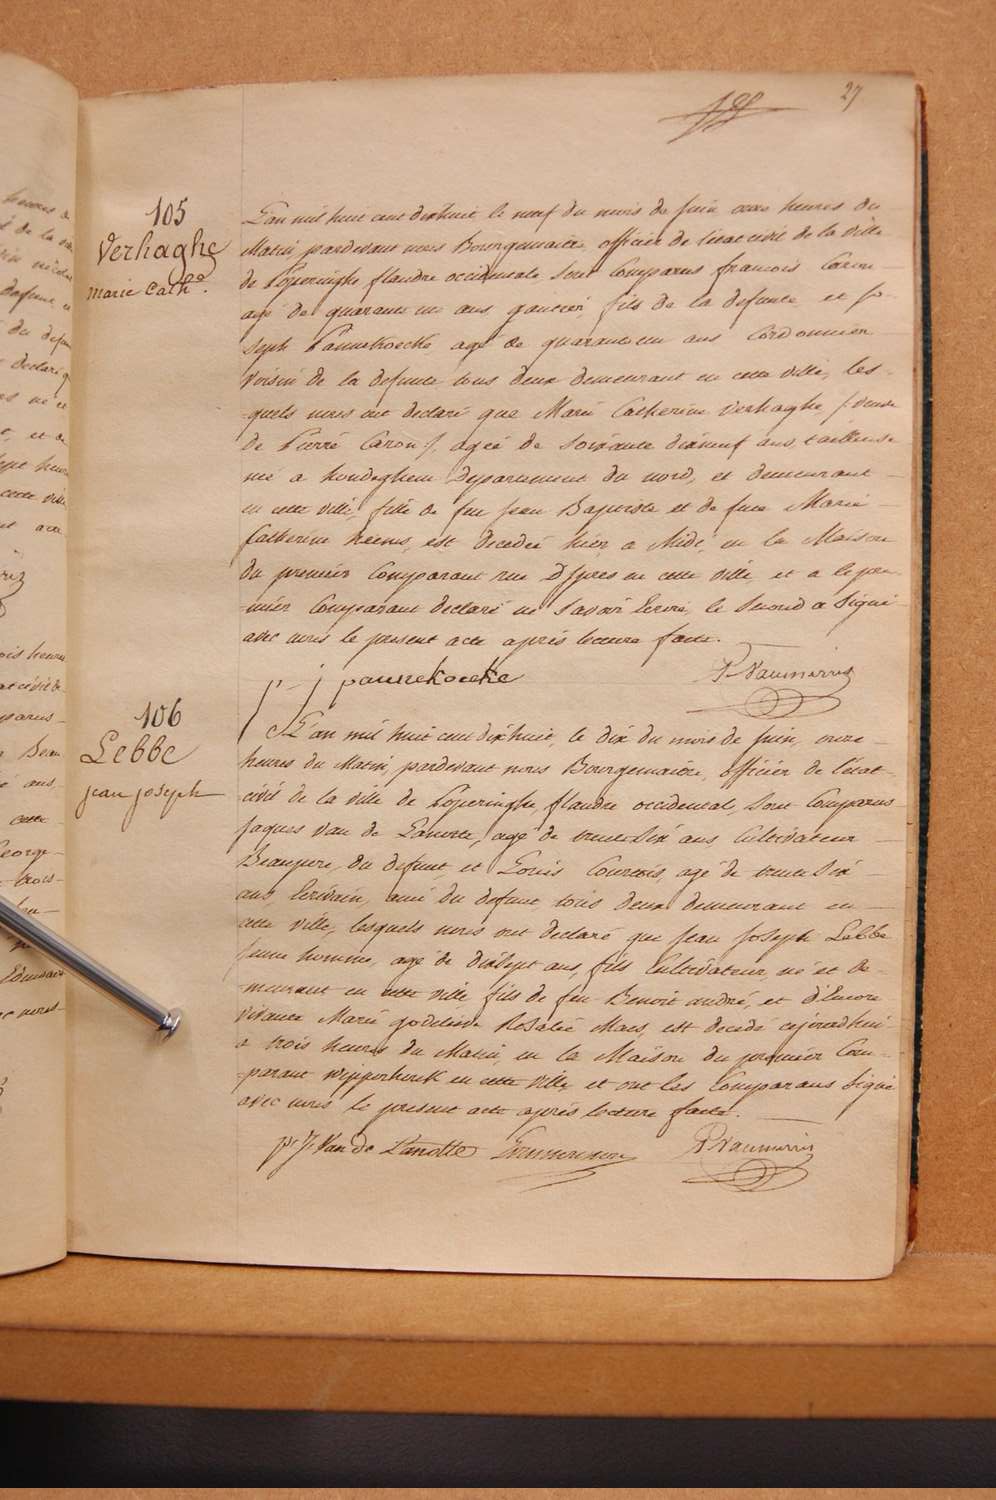 27
105
Verhaghe
Marie Cath.e
L'an mil huit cent dixhuit le neuf du mois de juin onze heures du
Matin, pardevant nous Bourgemaitre, officier de l'etat civil de la ville
de Poperinghe flandre occidentale sont Comparus francois Caron
agé de quarante un ans gantier, fils de la defunte et jo-
seph Pannekoecke agé de quarante un ans Cordonnier
voisin de la defunte tous deux demeurant en cette ville, les-
-quels nous ont declaré que Marie Catherine Verhaghe /: veuve
de Pierre Caron :/, ageé de soixante dixneuf ans, tailleuse
né a hondeghem departement du nord, et demeurant
en cette ville, fille de feu jean Baptiste et de feue Marie
Catherine heens, est decedeé hier a Midi, en la Maison
du premier Comparant rue D'Ypres en cette ville et a le pre-
-mier Comparant declaré ne savoir Ecrire, le second a signé
avec nous le present acte après lecture faite.
p j pannekoecke
106
Lebbe
jean joseph
L'an mil huit cent dixhuit, le dix du mois de juin, onze
heures du Matin, pardevant nous Bourgemaitre, officier de l'état
civil de la ville de Poperinghe, flandre occidental, sont Comparus
Jaques Van de Lanotte, agé de trente Six ans Cultivateur
Beaupere, du defunt, et Louis Courtois, agé de trente Six
ans, Ecrivain, ami du defunt, tous deux demeurant en
cette ville, lesquels nous ont declaré que Jean Joseph Lebbe
jeune homme, agé de dixsept ans, fils Cultivateur, né et de-
-meurant en cette ville fils de feu Benoit andré, et d'Encore
vivante Marie godelieve Rosalie Maes, est decedé cejourdhui
a trois heures du Matin, en la Maison du premier Com-
-parant Wipperhoek en cette ville, et ont les Comparans signé
avec nous le present acte après lecture faite.
p J. Van de Lanotte